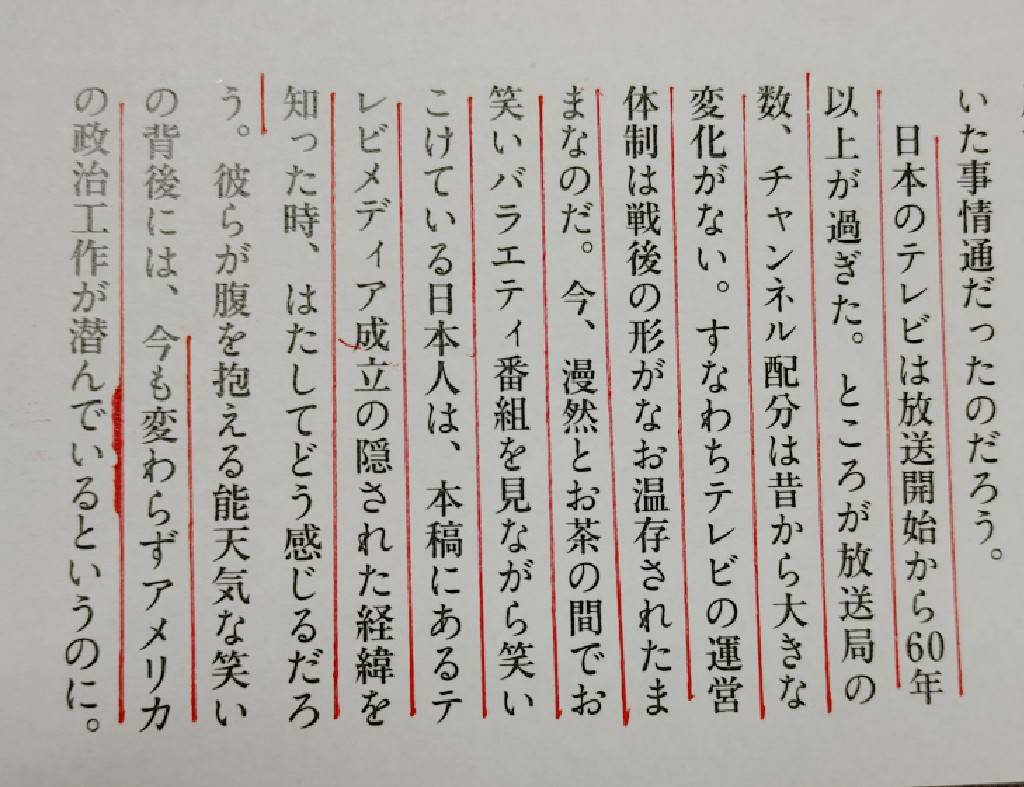 いた事情通だったのだろう。
日本のテレビは放送開始から60年
以上が過ぎた。ところが放送局の
数、チャンネル配分は昔から大きな
変化がない。すなわちテレビの運営
体制は戦後の形がなお温存されたま
まなのだ。今、漫然とお茶の間でお
笑いバラエティ番組を見ながら笑い
こけている日本人は、本稿にあるテ
レビメディア成立の隠された経緯を
知った時、はたしてどう感じるだろ
う。彼らが腹を抱える能天気な笑い
の背後には、今も変わらずアメリカ
の政治工作が潜んでいるというのに。